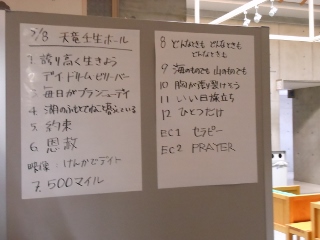 7/8 天竜壬生ホール
1. 誇り高く生きよう
2. デイドリームビリーバー
3. 毎日がブランニューデイ
4. 激しい雨
5. 約束
6. 恩赦
映像：けんかでデイト
7. 500マイル
8 どんなときも どんなときも どんなときも
9 海のものでも 山のものでも
10 胸が張り裂けそう
11 いい日旅立ち
12 ひとつだけ
EC1 セラピー
EC2 PRAYER